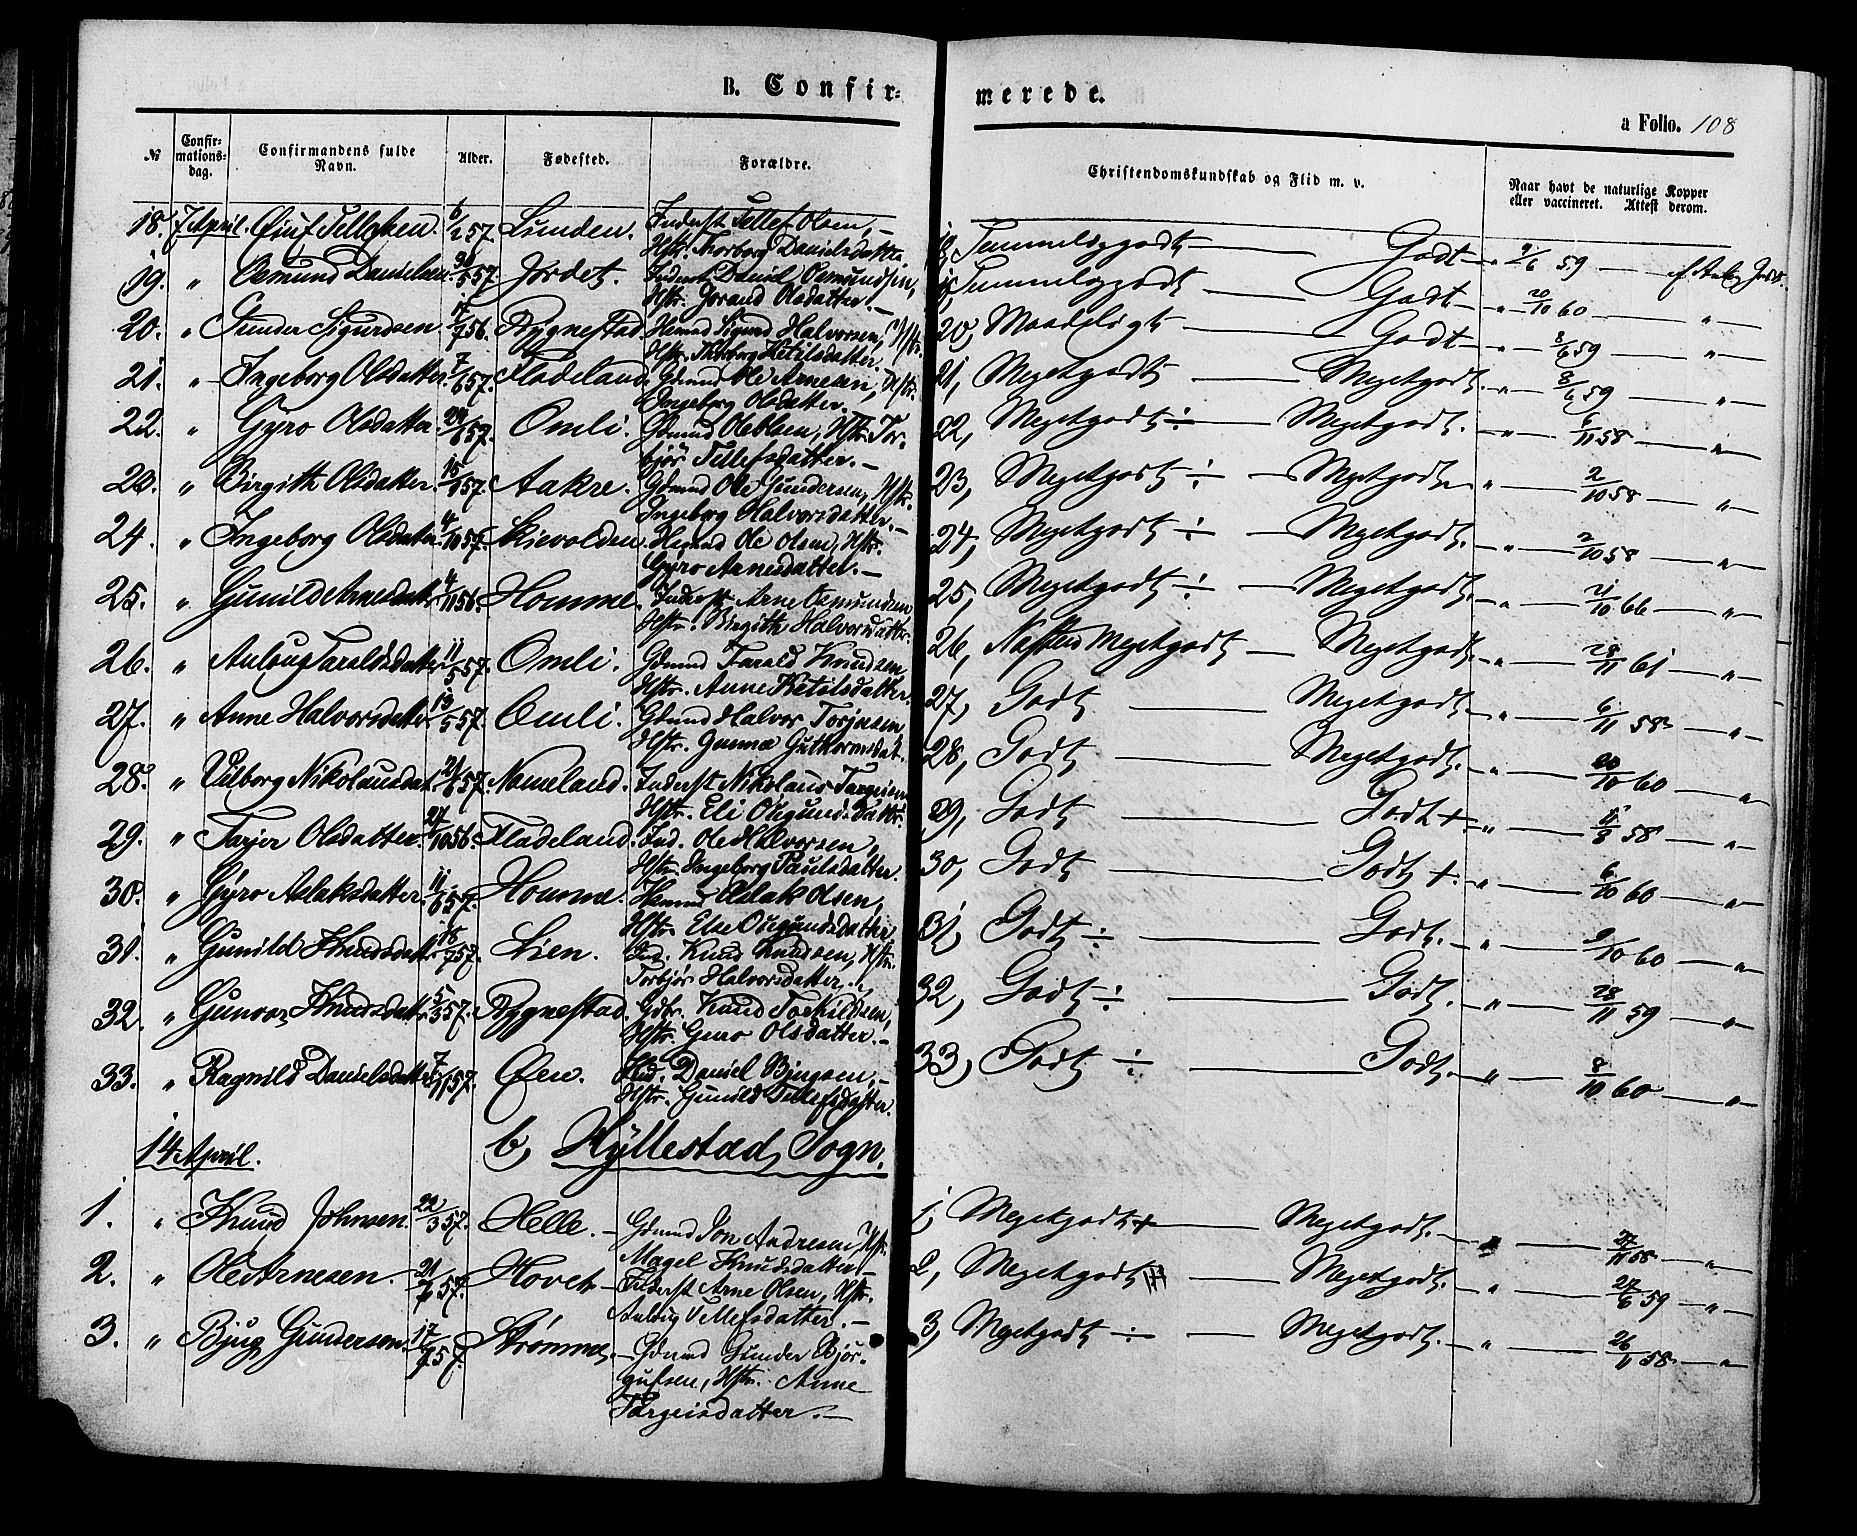 B. Confir=
merede.
a Folio. 108
№
Confir-
mations-
dag.
Confirmandens fulde
Navn.
Alder.
Fødested.
Forældre.
Christendomskundskab og Flid m. v.
Naar havt de naturlige Kopper
eller vaccineret. Attest derom.
18. 7 April. 6/2 57. Lunden. Inderst Tellef Olsen,
Hstr. Torborg Danielsdatter
18, Temmeliggodt — Godt — " 9/6 59 —
19. " Osmund Danielsen 57. Jordet. Inderst Daniel Osmundsen,
Hstr. Jorand Olsdatter.
19, Temmeliggodt — Godt — " 20/10 60 — "
20. " Gunder Sigurdsen. 56. Rygnestad. Sigurd Halvorsen, Hstr.
Hstr. Torborg Ketilsdatter.
20, Maadeligt — Godt — " 8/6 59 — "
21. " Ingeborg Olsdatter 7/6 57. Fladeland. Gdmnd Ole Arnesen, Hstr.
Ingeborg Olsdatter.
21, Megetgodt — Megetgodt. " 8/6 59 — "
22. " Gyro Olsdatter 57. Omli. Gdmnd Ole Olsen, Hstr. Tor-
bjør Tellefsdatter. —
22, Megetgodt ÷ — Megetgodt. " 6/11 58 — "
23. " Birgith Olsdatter. 57. Aakre. Gdmnd Ole Gundersen, Hstr.
Ingeborg Halvorsdatter. —
23, Megetgodt ÷ — Megetgodt " 2/10 58 — "
24. " Ingeborg Olsdatter 4/10 57. Skievolden. Ole Olsen, Hstr.
Gyro Arnesdatter. —
24, Megetgodt ÷ — Megetgodt. " 2/10 58 — "
25. " Gunild Arnesdatt. 4/11 56. Homme. Inderst Arne Osmundsen
Hstr. Birgith Halvorsdatter.
25, Megetgodt ÷ — Megetgodt. " 21/10 66 — "
26. " Aaloug Taraldsdatter 11/5 57. Omli. Gdmnd Tarald Knudsen,
Hstr. Anne Ketilsdatter.
26, Næsten Megetgodt — Megetgodt. " 28/11 61 — "
27. " Anne Halvorsdatter 13/5 57. Omli. Gdmnd Halvor Torjusen,
Hstr. Gunne Guttormsdat.
27, Godt — Megetgodt. " 6/11 58 — "
28. " Valborg Nikolausdat. 57. Nomeland. Inderst Nikolaus Targeisen
Hstr. Eli Osgundsdatter.
28, Godt — Megetgodt. " 20/10 60 — "
29. " Tarjer Olsdatter. 27/10 56. Fladeland. Ind. Ole Halvorsen,
Hstr. Ingeborg Paulsdatter.
29, Godt — Godt +. " 58 — "
30. " Gyro Aslaksdatter. 11/6 57. Homme. Aslak Olsen,
Hstr. Else Osgundsdatter,
30, Godt — Godt +. " 6/10 60 — "
31. " Gunild Knudsdatt. 18/7 57. Lien. Ind. Knud Knudsen, Hstr.
Torbjør Halvorsdatter.
31, Godt ÷ — Godt. — " 9/10 60 — "
32. " Gunvor Knudsdatt. 5/3 57. Rygnestad. Gdbr. Knud Torkildsen,
Hstr. Gyro Olsdatter. —
32, Godt ÷ — Godt. " 28/11 59 — "
33. " Ragnild Danielsdatter 57. Øen. Ind. Daniel Bjugsen, —
Hstr. Gunild Tellefsdatter.
33, Godt ÷ — Godt. — " 8/10 60 — "
14 April. b, Hyllestad Sogn.
1. " Knud Johnsen. 22/3 57. Helle. — Gdmnd Jon Andresen, Hstr.
Magel Knudsdatter —
1, Megetgodt + — Megetgodt. — " 27/11 58 — "
2. " Ole Arnesen. 57. Hovet — Inderst Arne Olsen, Hstr.
Aaloug Tellefsdatter. —
2, Megetgodt — Megetgodt. " 27/6 59 — "
3. " Bjug Gundersen. 57. Strømme. — Gdmnd Gunder Bjør-
gufsen, Hstr. Anne
Targeisdatter. —
3, Megetgodt ÷ — Megetgodt. " 26/11 58 — "